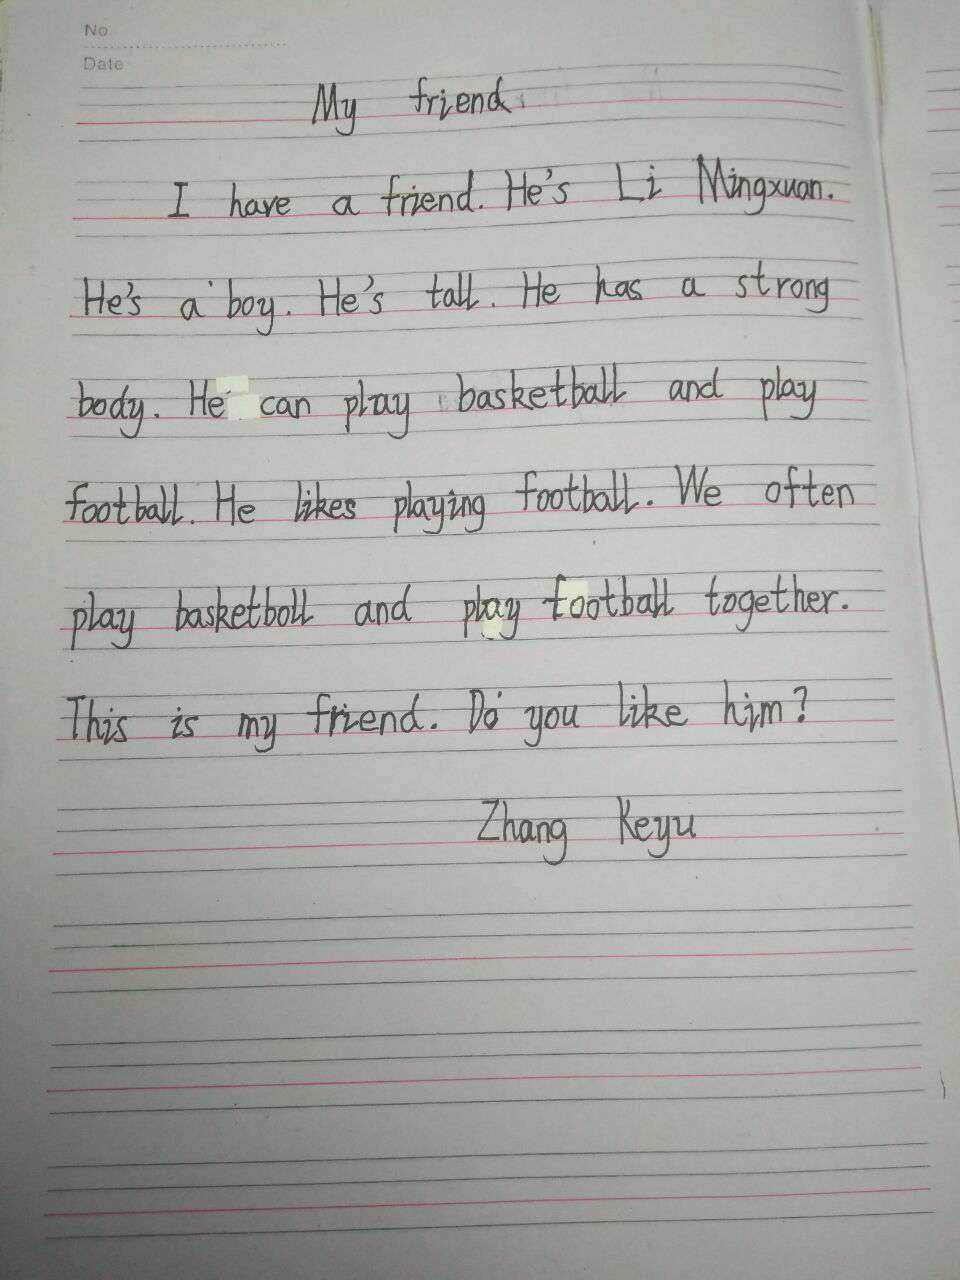 No
Date
My friend
I have a friend. He's Li Mingxuan.
He's a boy. He's tall. He has a strong
body. He can play basketball and play
football. He likes playing football. We often
play basketboll and play football together.
This is my friend. Do you like him?
Zhang Keyu